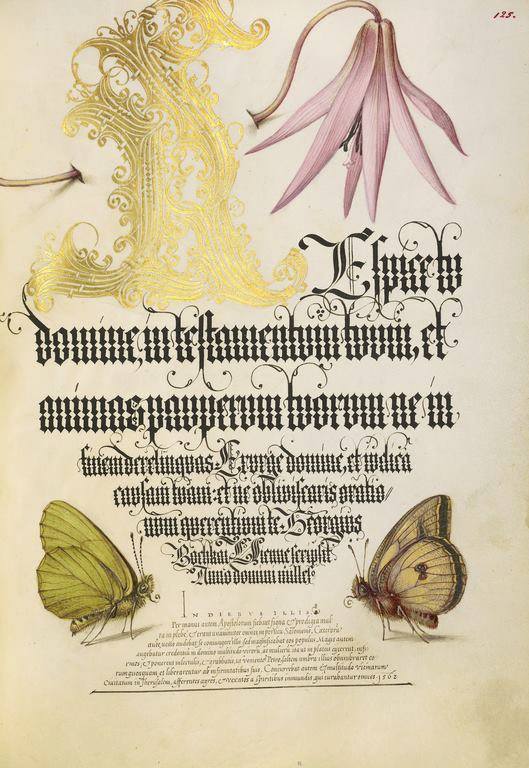 125.
REspice tu
domine, in testamentum tuum, et
animas pauperum tuorum ne in
finem derelinquas. Exurge domine, et iudica
causam tuam: et ne obliviscaris oratio//
num querentium te. Georgius
Bochkai Vienne scripsit
Anno domini milles
IN DIEBUS ILLIS
Per manus autem Apostolorum fiebant signa & prodigia mul
ta in plebe, & erant unanimiter omnes in porticu Salomonis. Ceteroru
autem nullus audebat se coniungere illis sed magnificabat eos populus. Magis autem
augebatur credentiu in domino multitudo viroru, ac mulieru ita ut in plateas eijcerent, infir
mos, & ponerent in lectulis, & grabbatis, ut veniente Petro, saltem umbra illius obumbraret eo
rum quenquam et liberarentur ab infirmitatibus suis. Concurrebat autem & multitudo vicinarum
Civitatum in Jherusalem, afferentes egros, & vexatos a spiritibus immundis qui curabantur omnes 1562